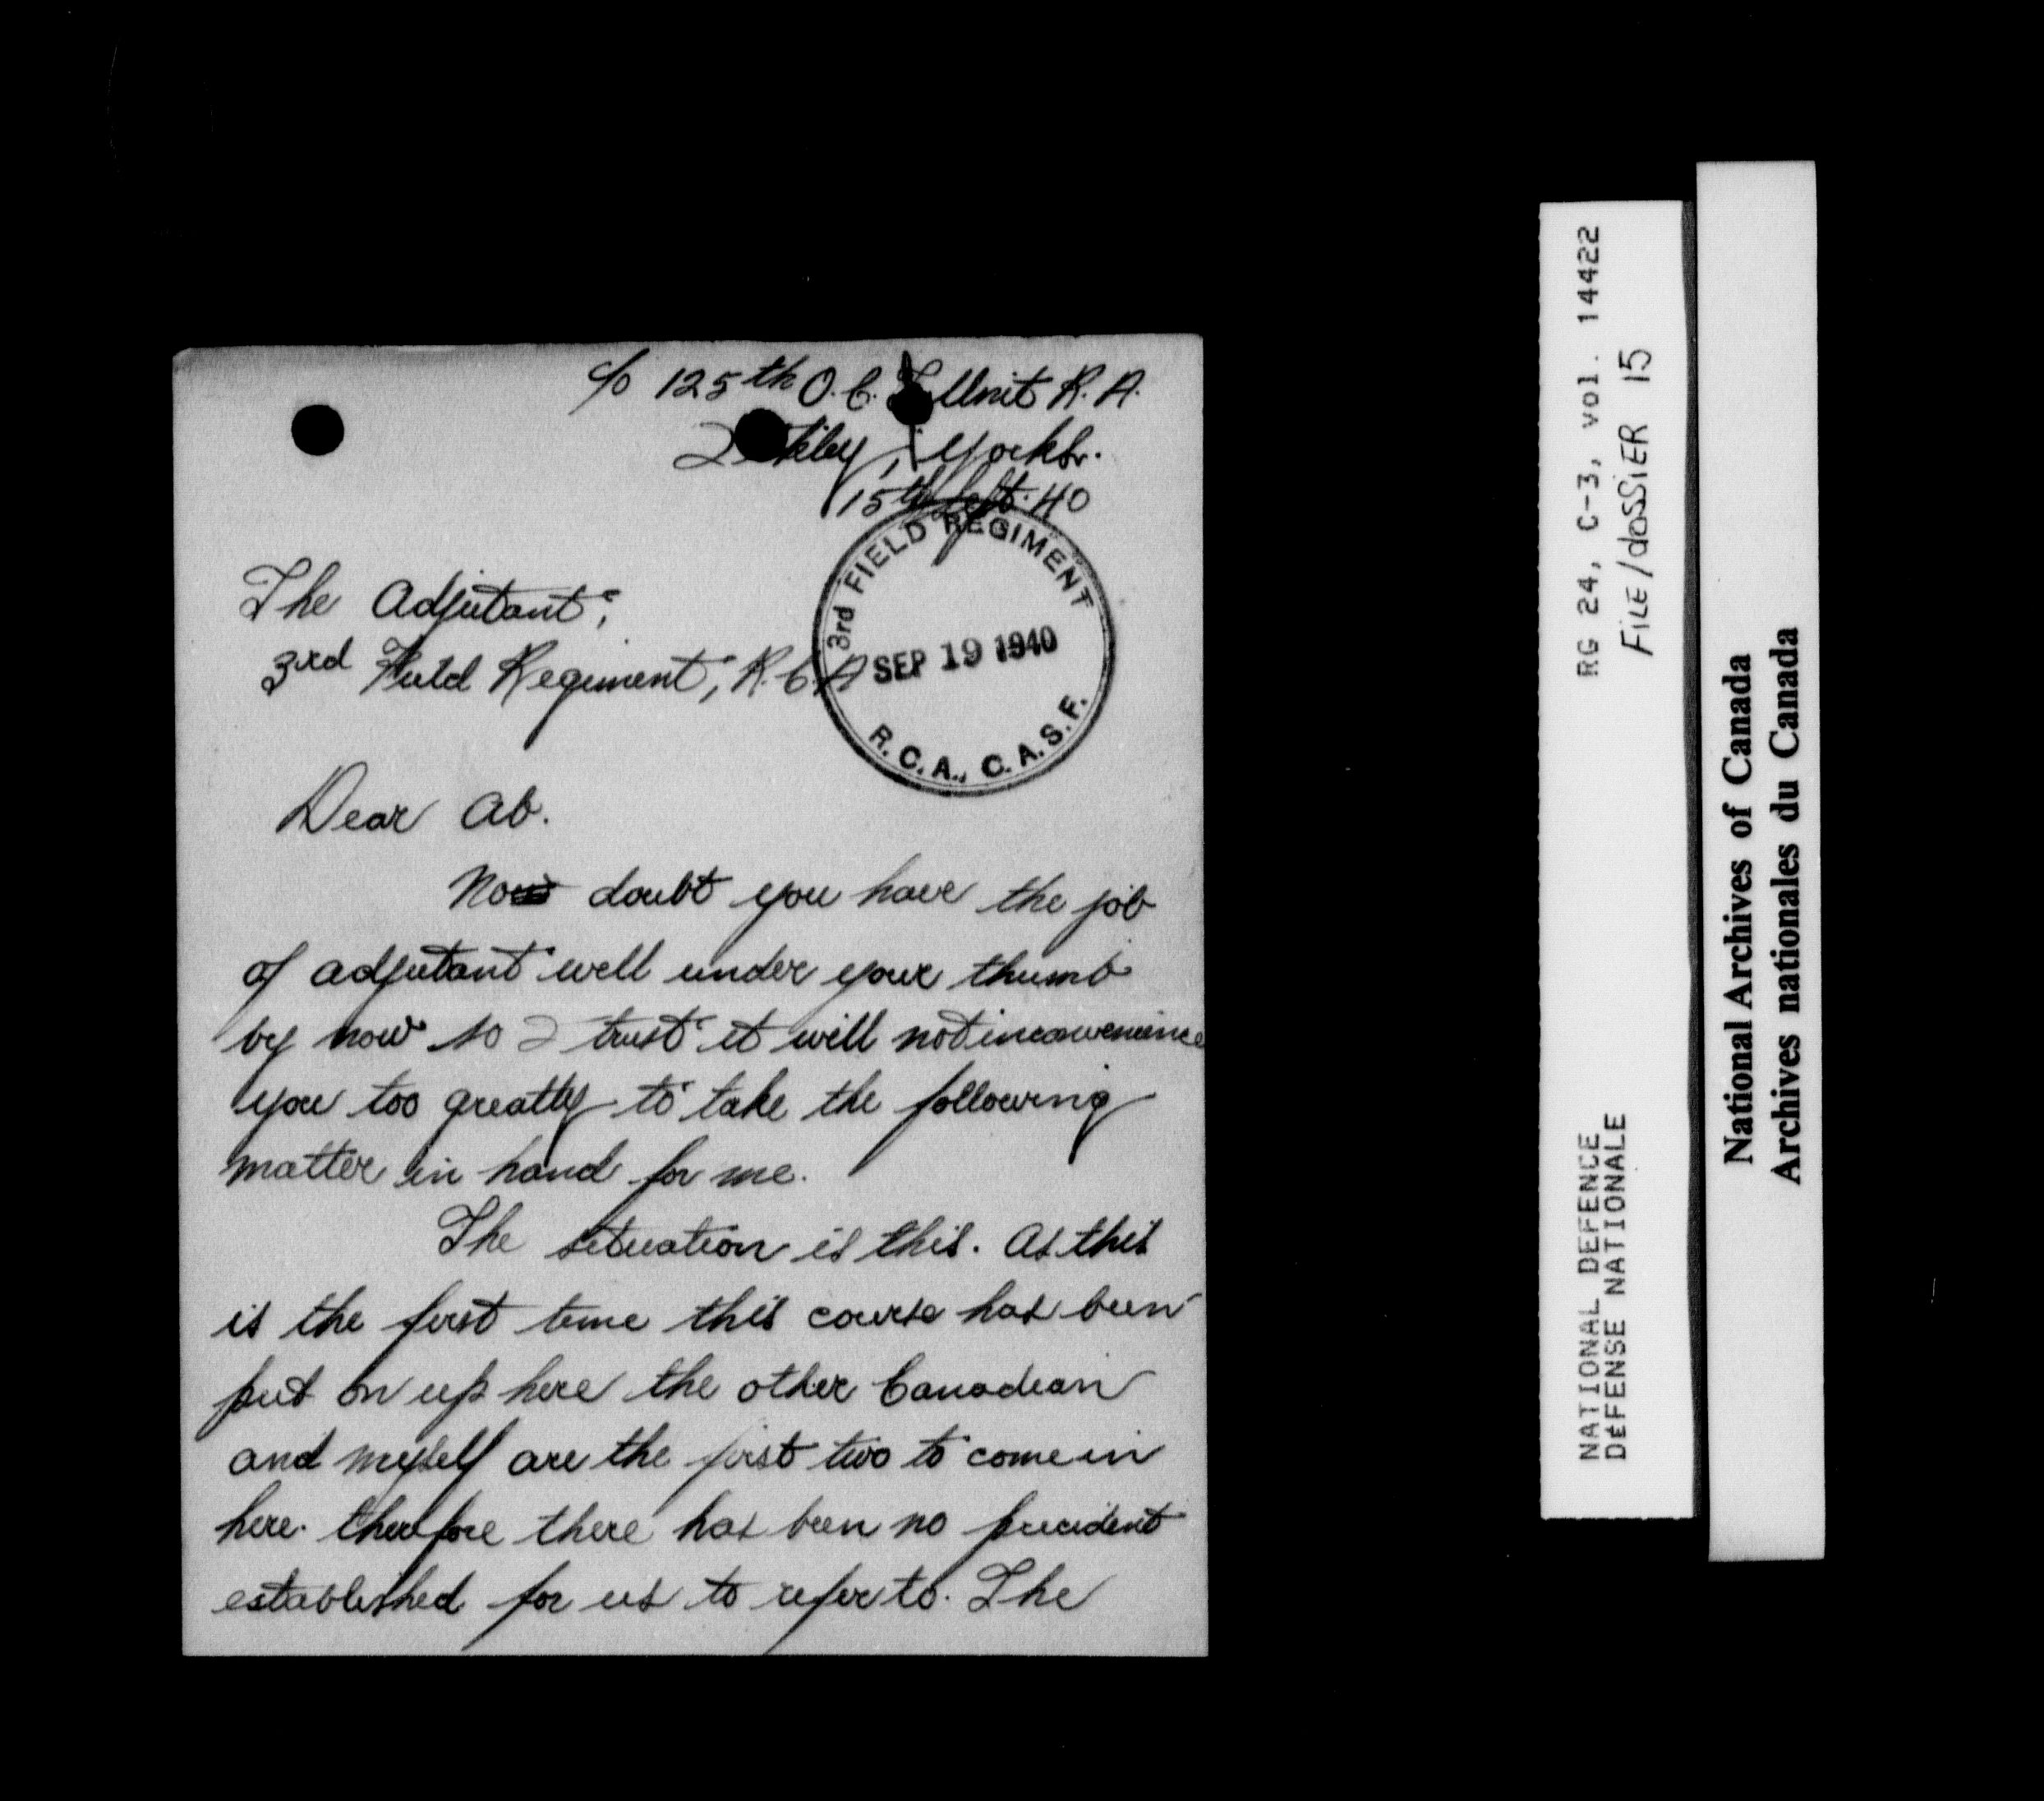 c/o 125th O.C.T. Unit R.A.
Ilkley, Yorks.
15th Sept. 40
3rd FIELD REGIMENT
SEP 19 1940
R.C.A., C.A.S.F.
The Adjutant,
3rd Field Regiment, R.C.A
Dear Ab.
No doubt you have the job
of adjutant well under your thumb
by now so I trust it will not inconvenience
you too greatly to take the following
matter in hand for me.
The situation is this. As this
is the first time this course has been
put on up here the other Canadian
and myself are the first two to come in
here. therefore there has been no precident
established for us to refer to. The
RG 24, C-3, vol. 14422
FILE/dossier 15
NATIONAL DEFENCE
DÉFENSE NATIONALE
National Archives of Canada
Archives nationales du Canada